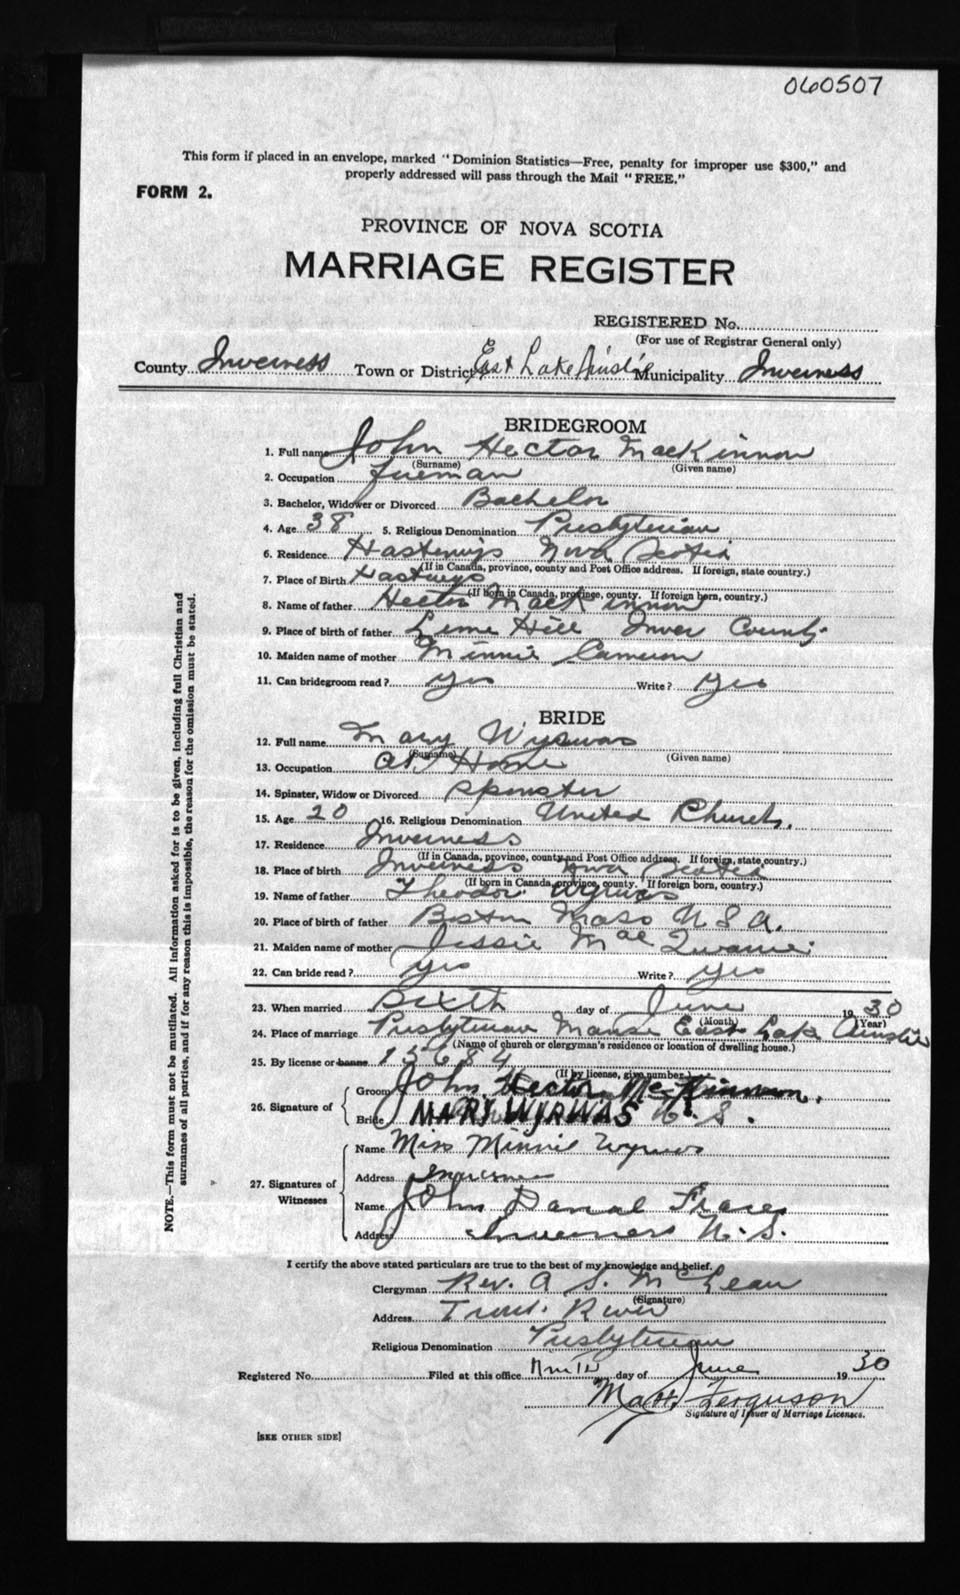 060507
This form if placed in an envelope, marked "Dominion Statistics—Free, penalty for improper use $300," and
properly addressed will pass through the Mail "FREE."
FORM 2.
PROVINCE OF NOVA SCOTIA
MARRIAGE REGISTER
REGISTERED No.
(For use of Registrar General only)
County Inverness Town or District East Lake Ainslie Municipality Inverness
BRIDEGROOM
1. Full name John Hector MacKinnon
(Surname) (Given name)
2. Occupation
3. Bachelor, Widower or Divorced Bachelor
4. Age 38 5. Religious Denomination Presbyterian
6. Residence Hastings Nova Scotia
(If in Canada, province, county and Post Office address. If foreign, state country.)
7. Place of Birth Hastings
(If born in Canada, province, county. If foreign born, country.)
8. Name of father Hector MacKinnon
9. Place of birth of father Lime Hill Inver County
10. Maiden name of mother Minnie Cameron
11. Can bridegroom read? yes Write? yes
BRIDE
12. Full name Mary Wyrwas
(Surname) (Given name)
13. Occupation At Home
14. Spinster, Widow or Divorced Spinster
15. Age 20 16. Religious Denomination United Church.
17. Residence Inverness
(If in Canada, province, county and Post Office address. If foreign, state country.)
18. Place of birth Inverness Nova Scotia
(If born in Canada, province, county. If foreign born, country.)
19. Name of father Theodor Wyrwas
20. Place of birth of father Boston Mass U S A.
21. Maiden name of mother Jessie Mac
22. Can bride read? yes Write? yes
23. When married Sixth day of June 1930
(Month) (Year)
24. Place of marriage Presbyterian Manse East Lake Ainslie
(Name of church or clergyman's residence or location of dwelling house.)
25. By license or banns 15684
(If by license, give number.)
26. Signature of Groom John Hector McKinnon.
Bride MARY WYRWAS N. S.
27. Signatures of Witnesses
Name Miss Minnie Wyrwas
Address Inverness
Name John Danal Fraser
Address Inverness N. S.
I certify the above stated particulars are true to the best of my knowledge and belief.
Clergyman Rev. A S. McLean
(Signature)
Address Trout River
Religious Denomination Presbyterian
Registered No. Filed at this office day of June 1930
Matt. Ferguson
Signature of Issuer of Marriage Licenses.
[SEE OTHER SIDE]
NOTE.—This form must not be mutilated. All information asked for is to be given, including full Christian and
surnames of all parties, and if for any reason this is impossible, the reason for the omission must be stated.